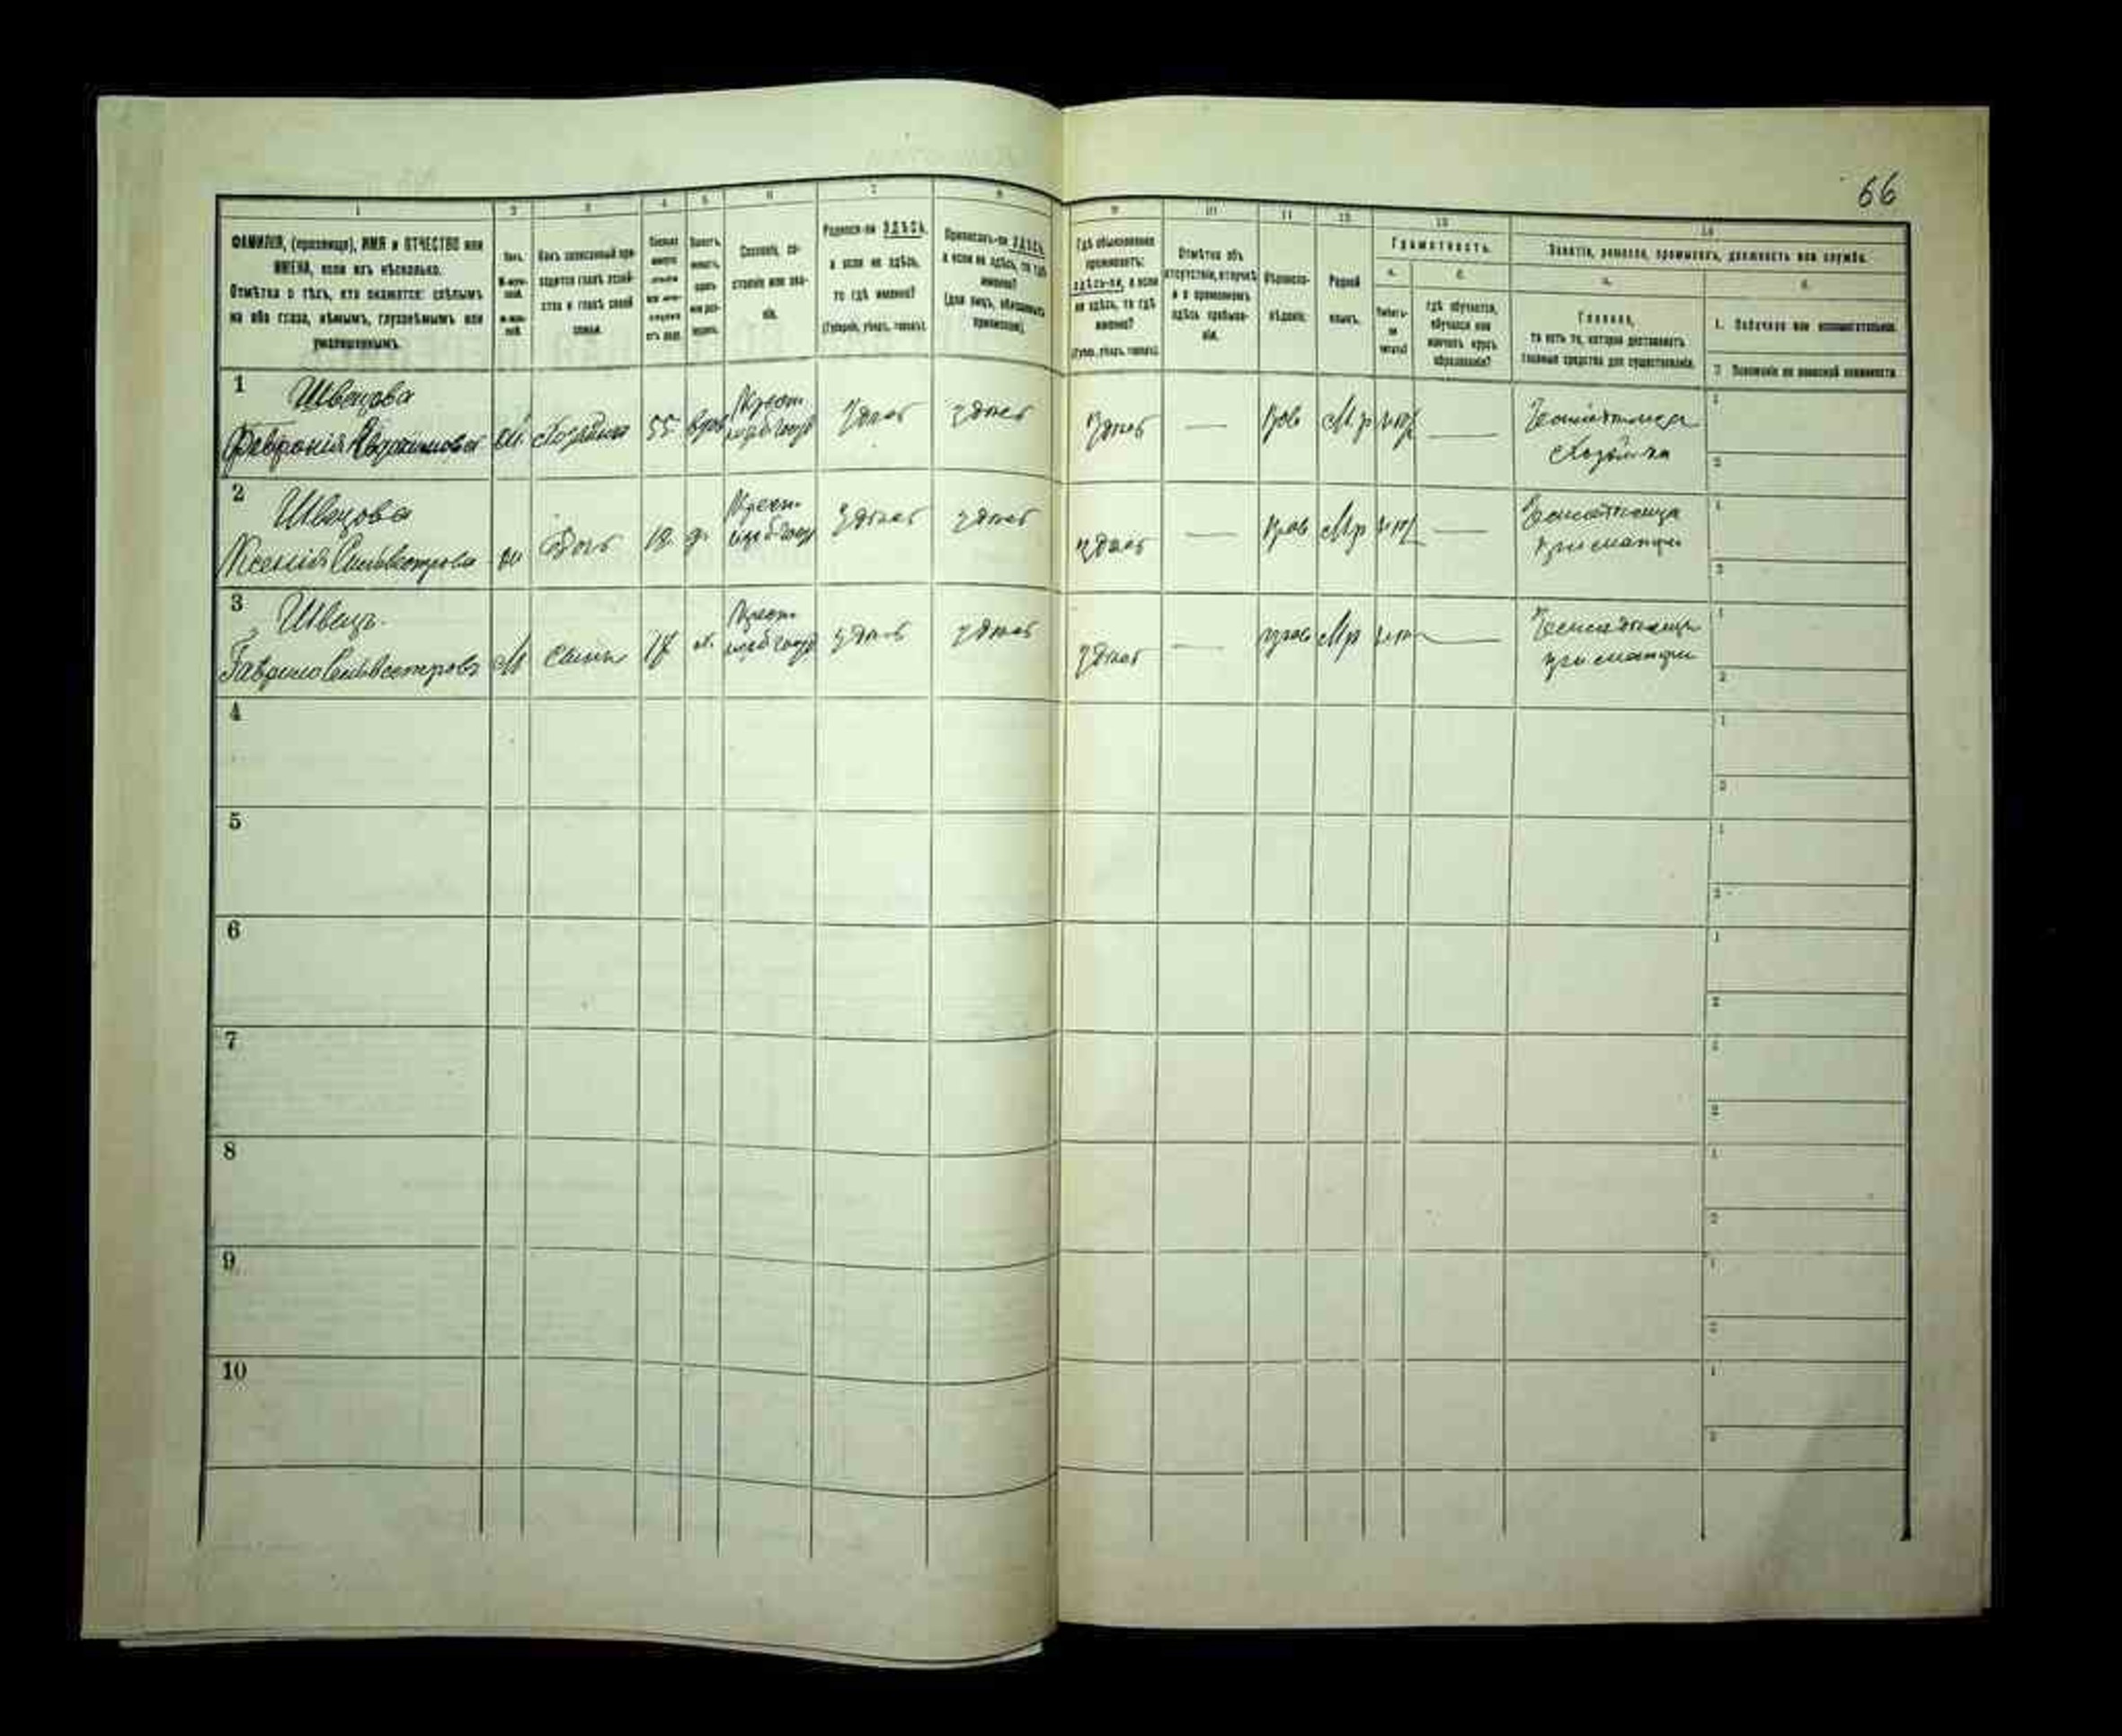 66
1 2 3 4 5 6 7 8 9 10 11 12 13 14
ФАМИЛІЯ, (прозвище), ИМЯ и ОТЧЕСТВО или
ИМЕНА, если ихъ нѣсколько.
Отмѣтка о тѣхъ, кто окажется: слѣпымъ
на оба глаза, нѣмымъ, глухонѣмымъ или
умалишеннымъ.
Полъ.
Какъ записанный при-
ходится главѣ хозяй-
ства и главѣ своей
семьи.
Сословіе, со-
стояніе или зва-
ніе.
Родился-ли ЗДѢСЬ,
а если не здѣсь,
то гдѣ именно?
(Губернія, уѣздъ, городъ).
Приписанъ-ли ЗДѢСЬ,
а если не здѣсь, то гдѣ
именно?
(для лицъ, обязанныхъ
припискою).
Гдѣ обыкновенно
проживаетъ:
здѣсь-ли, а если
не здѣсь, то гдѣ
именно?
(Губ., уѣздъ, городъ).
Отмѣтка объ
отсутствіи, отлучкѣ
и о временномъ
здѣсь пребыва-
ніи.
Вѣроиспо-
вѣданіе.
Родной
языкъ.
Грамотность.
а.
б.
Умѣетъ-
ли
читать?
гдѣ обучается,
обучался или
кончилъ курсъ
образованія?
Занятіе, ремесло, промыселъ, должность или служба.
а.
Главное,
то есть то, которое доставляетъ
главныя средства для существованія.
б.
1. Побочное или вспомогательное.
2. Положеніе по воинской повинности.
1 Швецова
Февронія
Хозяйка 55 вдов
Крест
здѣсь здѣсь
здѣсь — Прав М.р нѣт —
Хозяйка
1
2
2 Швецова
Ксенія Сильвестрова
Дочь 19 д.
Крест
здѣсь здѣсь
здѣсь — Прав М.р нѣт —
при матери
1
2
3 Швецъ
Гаврило Сильвестровъ
М сынъ 17 х.
Крест
здѣсь здѣсь
здѣсь — прав М.р нѣт —
при матери
1
2
4 1
2
5 1
2
6 1
2
7 1
2
8 1
2
9 1
2
10 1
2